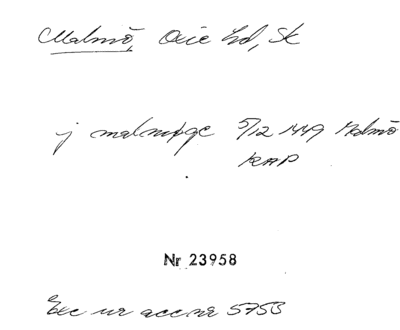 Malmö, Oxie hd, Sk
j malmøge 5/12 1449 Malmö
KAP
Nr 23958
Exc ur acc nr 5753